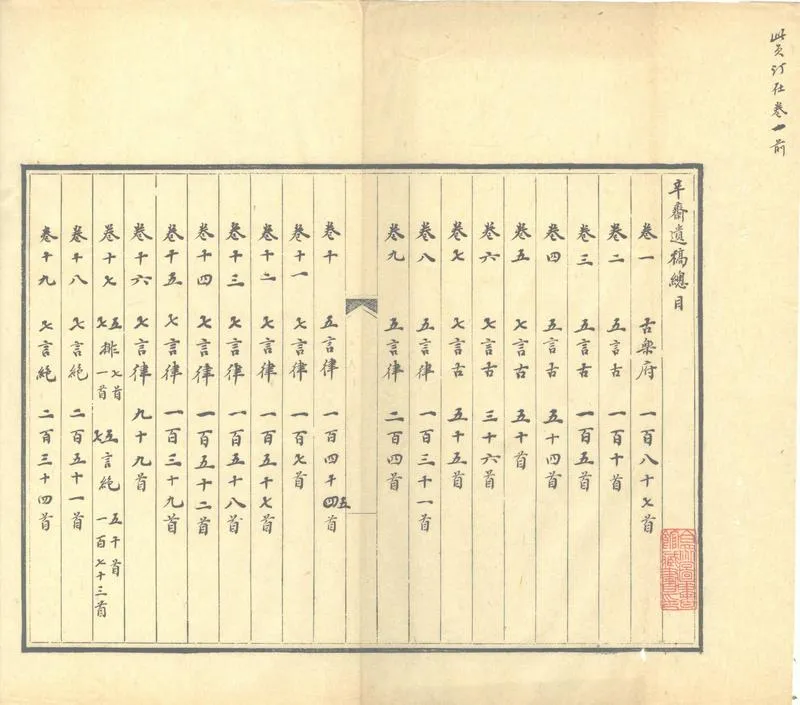 此頁訂在卷一前
辛齋遺稿總目
卷一 古樂府 一百八十七首
卷二 五言古 一百十首
卷三 五言古 一百五首
卷四 五言古 五十四首
卷五 七言古 五十首
卷六 七言古 三十六首
卷七 七言古 五十五首
卷八 五言律 一百三十一首
卷九 五言律 二百四首
卷十 五言律 一百四十五首
卷十一 七言律 一百七首
卷十二 七言律 一百五十七首
卷十三 七言律 一百五十八首
卷十四 七言律 一百五十二首
卷十五 七言律 一百三十九首
卷十六 七言律 九十九首
卷十七 五七排 七首一首 五七言絕 五十首一百七十三首
卷十八 七言絕 二百五十一首
卷十九 七言絕 二百三十四首
合眾圖書館藏書印